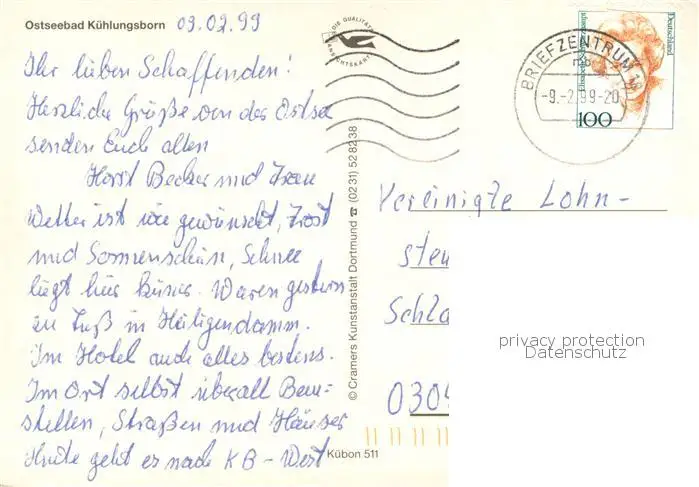 Ostseebad Kühlungsborn 09.02.99
Ihr lieben Schaffenden!
Herzliche Grüße von der Ostsee
senden Euch allen
Horst Becker und Frau
Wetter ist wie gewünscht, Frost
und Sonnenschein, Schnee
liegt hier keiner. Waren gestern
zu Fuß in Heiligendamm.
Im Hotel auch alles bestens.
Im Ort selbst überall Bau-
stellen, Straßen und Häuser
Heute geht es nach KB-West
DIE QUALITÄTS
ANSICHTSKARTE
© Cramers Kunstanstalt Dortmund ☎ (0231) 528238
Kübon 511
Deutschland
100
BRIEFZENTRUM 18
mb
-9.-2.99-20
Vereinigte Lohn-
steu
Schla
0304
privacy protection
Datenschutz